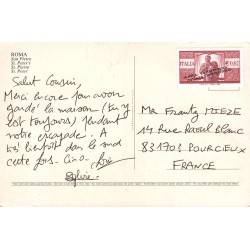 ROMA
San Pietro
St. Peter's
St. Pierre
St. Peter
Salut Cousin,
Merci encore pour avoir
gardé la maison (tu y
est toujours) pendant
notre escapade. A
très bientôt dans le rond
cette fois. Ciao.
Sylvie.
ITALIA
Mr Frantz MIEZE
14 Rue Raoul Blanc
831703 POURCIEUX
FRANCE